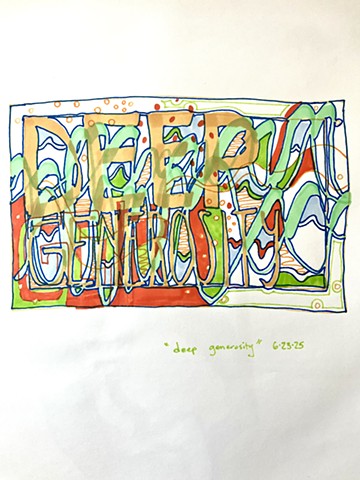 DEEP
GENEROSITY
"deep generosity" 6-23-25